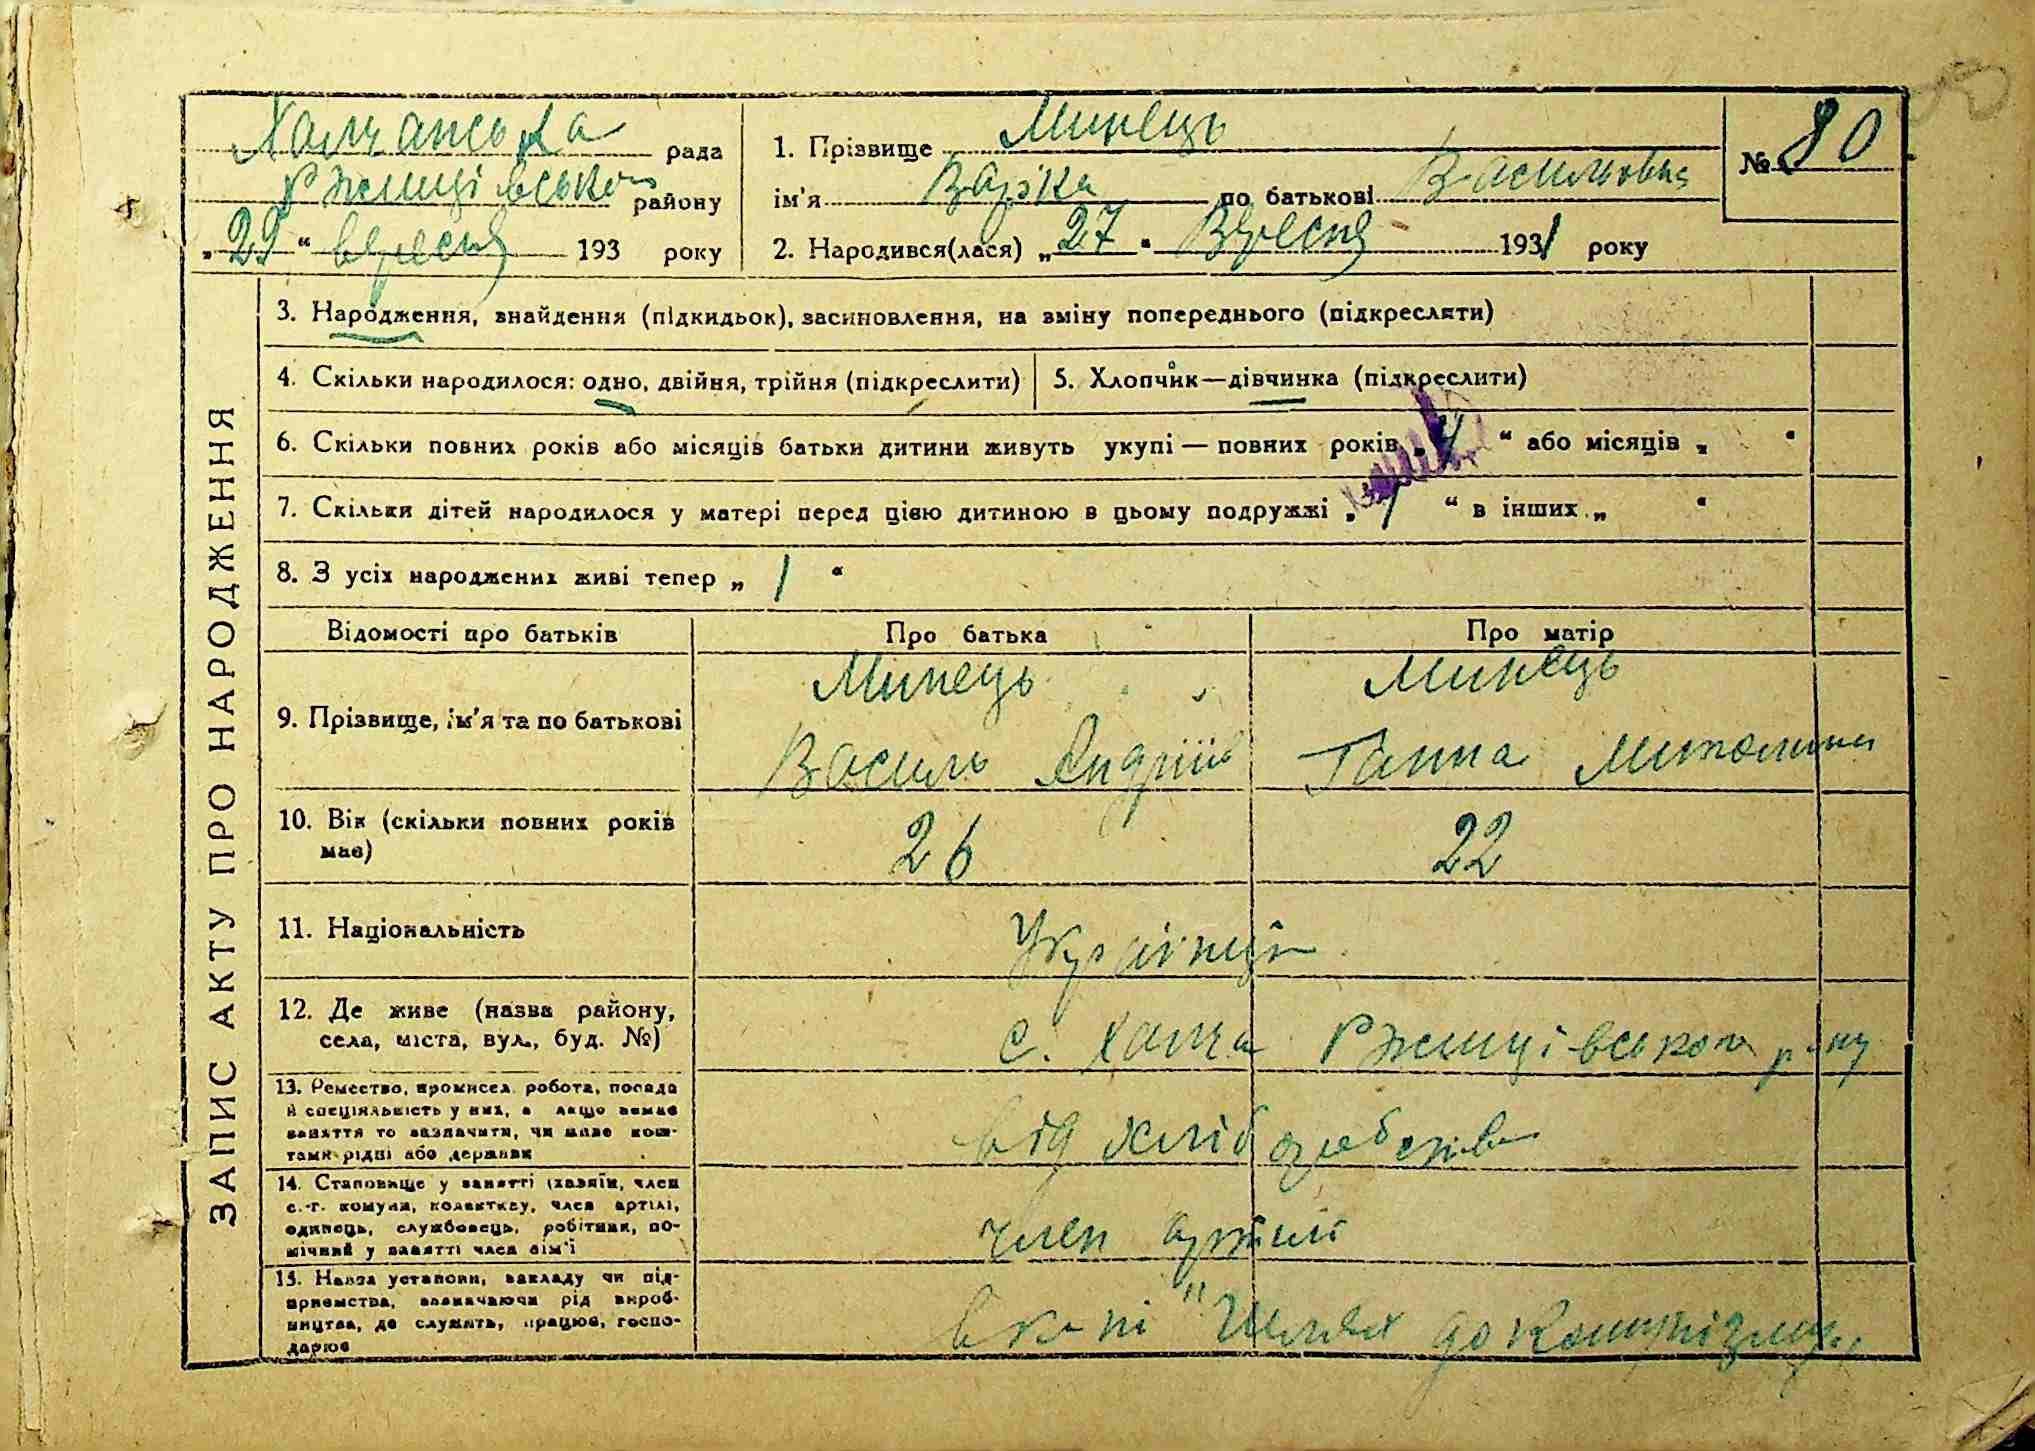 Халчанська рада
Ржищівського району
„29“ вересня 193 року
1. Прізвище Минець
ім'я Варка по батькові Васильовна
№ 80
2. Народився(лася) „27“ Вересня 1931 року
ЗАПИС АКТУ ПРО НАРОДЖЕННЯ
3. Народження, знайдення (підкидьок), засиновлення, на зміну попереднього (підкреслити)
4. Скільки народилося: одно, двійня, трійня (підкреслити)
5. Хлопчик—дівчинка (підкреслити)
6. Скільки повних років або місяців батьки дитини живуть укупі — повних років „4“ або місяців „ “
7. Скільки дітей народилося у матері перед цією дитиною в цьому подружжі „1“ в інших „ “
8. З усіх народжених живі тепер „1“
Відомості про батьків
Про батька
Про матір
9. Прізвище, ім'я та по батькові
Минець
Василь Андріїв
Минець
Ганна
10. Вік (скільки повних років
має)
26
22
11. Національність
Українці
12. Де живе (назва району,
села, міста, вул., буд. №)
с. Халча Ржищівського р-ну
13. Ремество, промисел, робота, посада
й спеціяльність у них, а якщо немає
заняття то зазначити, чи живе кош-
тами рідні або держави
від хліборобства
14. Становище у занятті (хазяїн, член
с.-г. комуни, колективу, член артілі,
одинець, службовець, робітник, по-
мічний у занятті член сім'ї
член артілі
15. Назва установи, закладу чи під-
приємства, зазначаючи рід вироб-
ництва, де служить, працює, госпо-
дарює
в к-пі "Шлях до Комунізму"